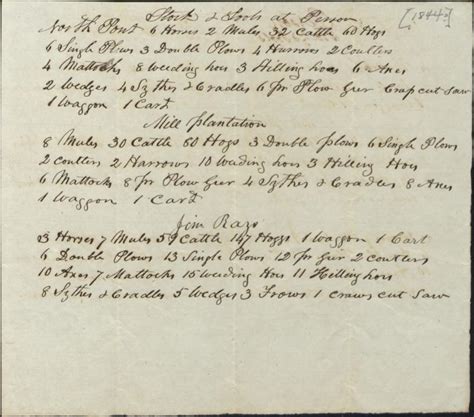 Stock & Tools at Person [1844?]
North Point 6 Horses 2 Mules 32 Cattle 60 Hogs
6 Single Plows 3 Double Plows 4 Harrows 2 Coulters
4 Mattocks 8 weeding hoes 3 Hilling hoes 6 Axes
2 wedges 4 Sythes & Cradles 6 pr Plow Gur Crap cut saw
1 waggon 1 Cart
Mill plantation
8 Mules 30 Cattle 50 Hogs 3 Double plows 6 Single Plows
2 coulters 2 Harrows 10 weding hois 3 Hilling Hois
6 Mattocks 8 pr Plow Gur 4 Sythes & Cradles 8 Axes
1 waggon 1 Cart
Jim Rays
3 Horses 7 Mules 59 Cattle 147 Hoggs 1 waggon 1 Cart
6 Double Plows 13 Single Plows 12 pr Gur 2 coulters
10 Axes 7 Mattocks 15 weding Hois 11 Helling hois
8 Sythes & Cradles 5 wedges 3 Frows 1 craws cut Saw